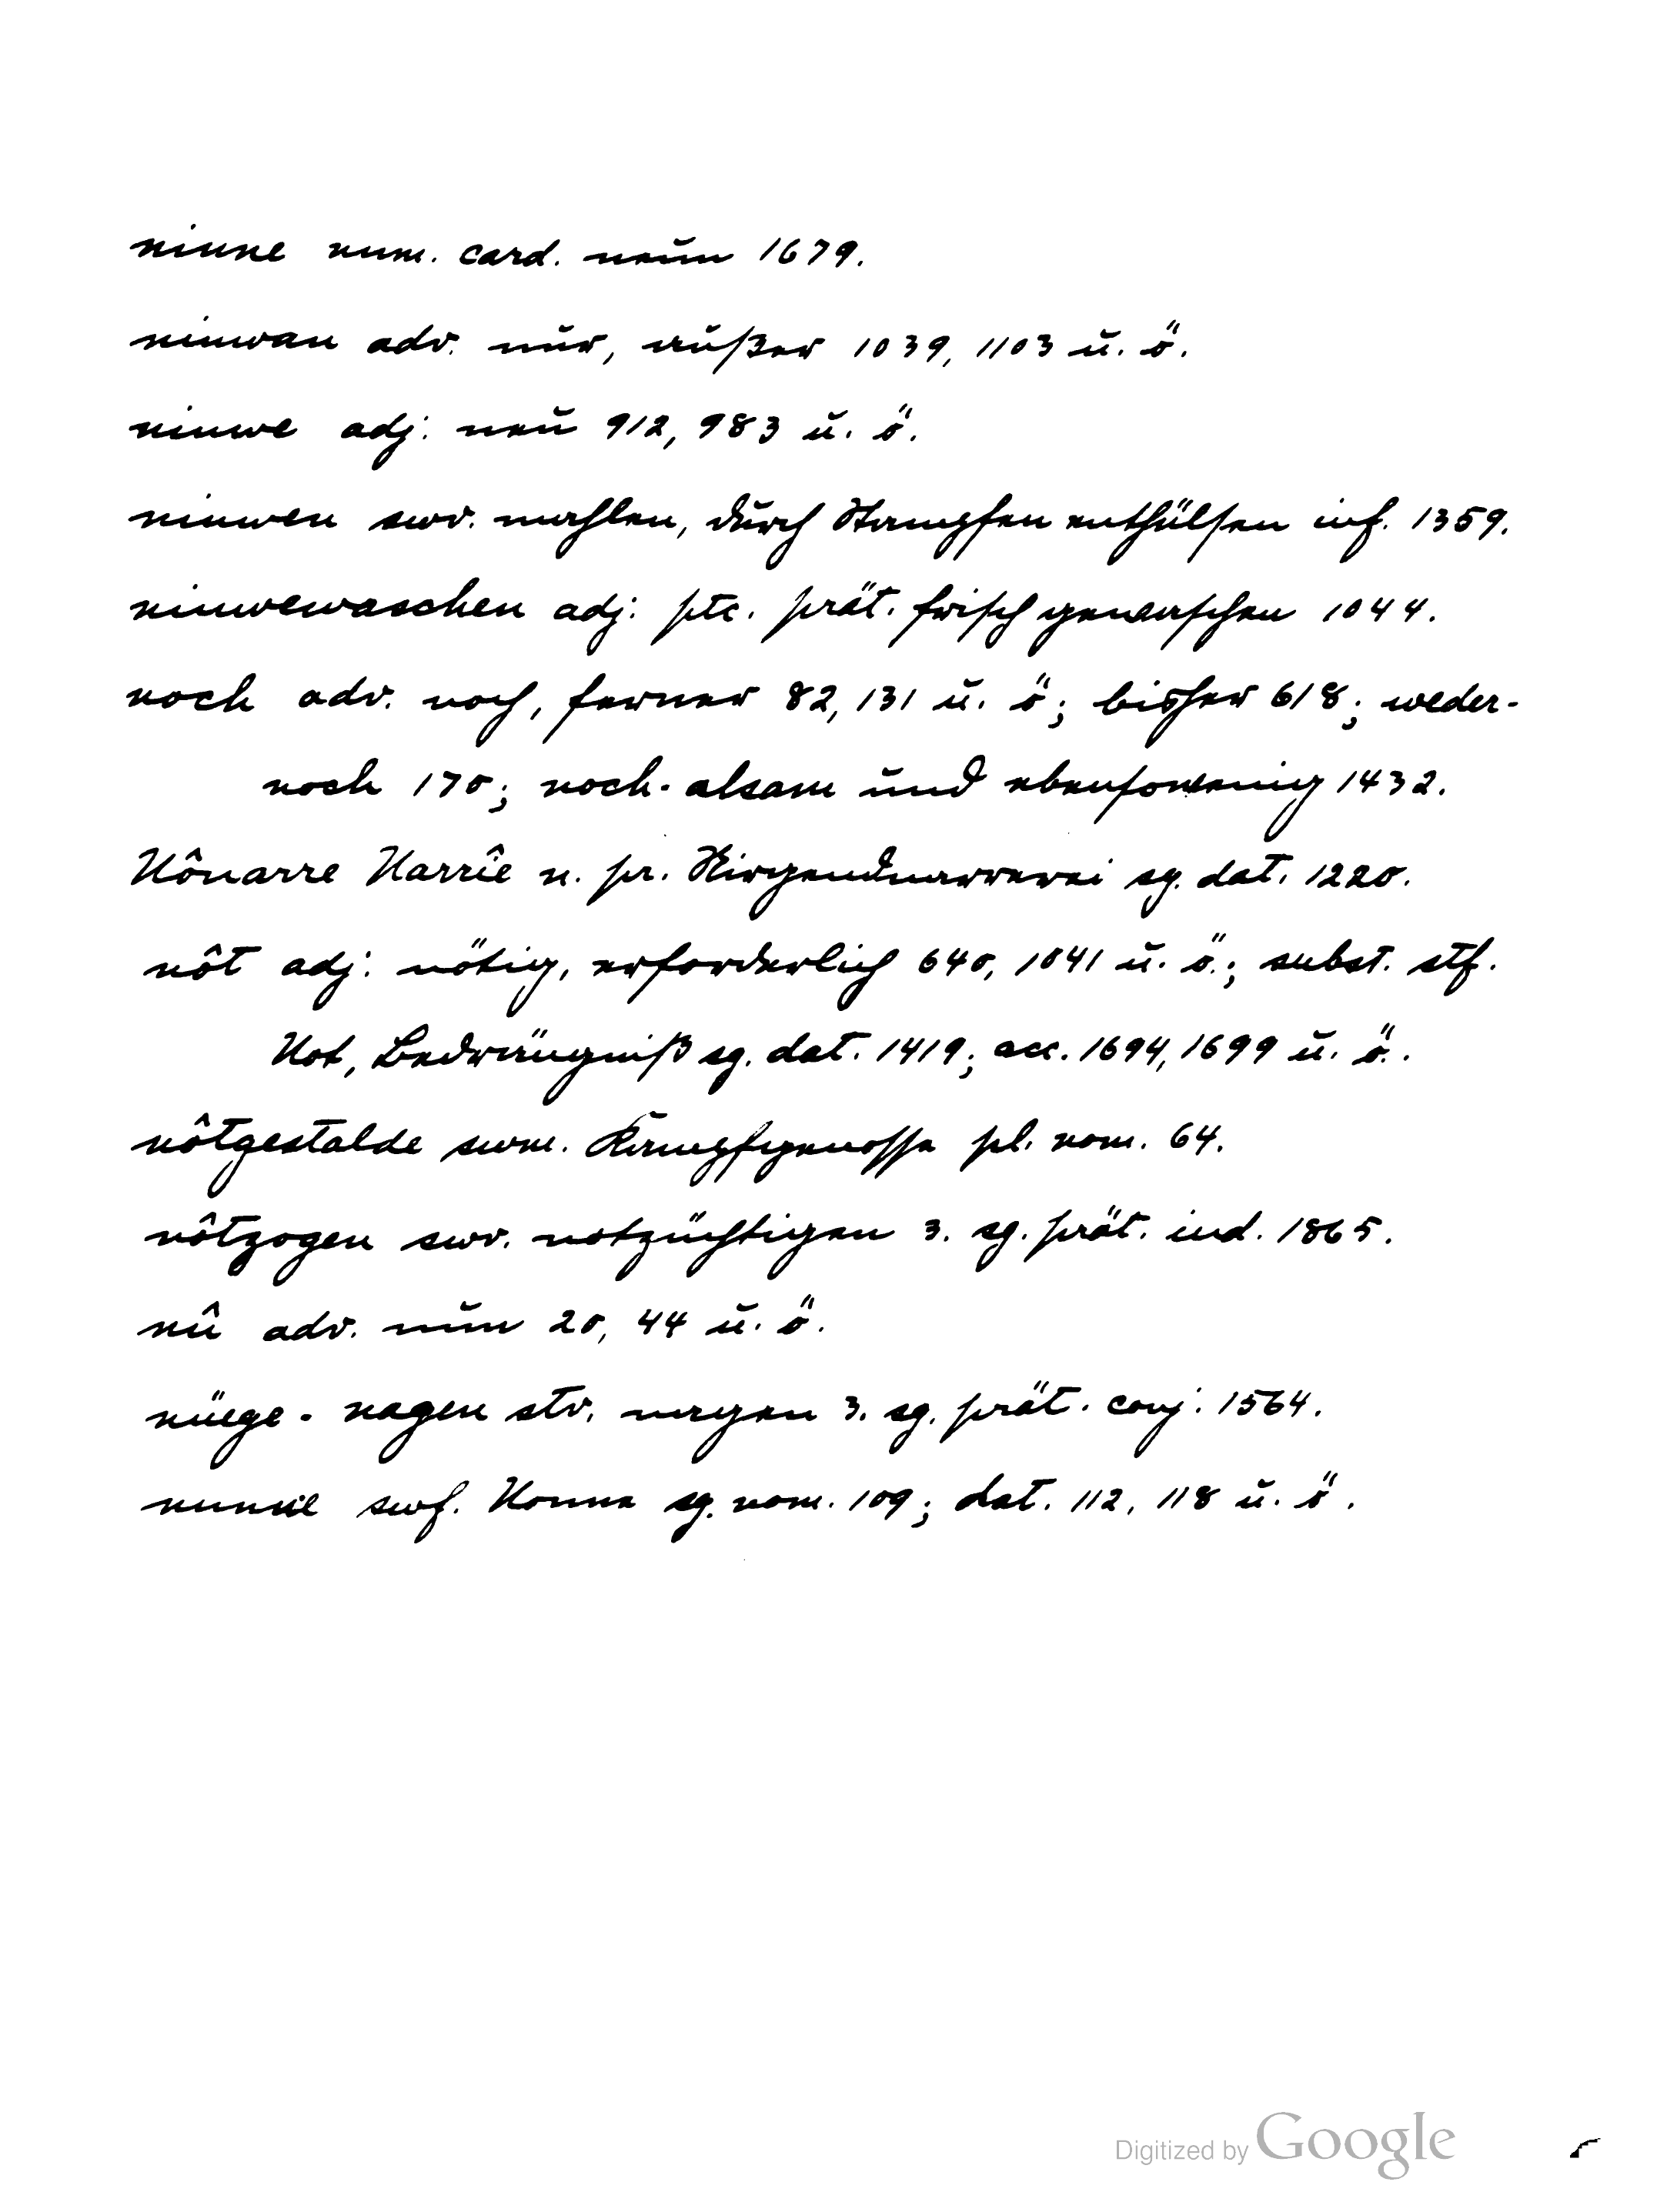 niune num. card. neun 1679.
niuwan adv. nur, außer 1039, 1103 u. ö.
niuwe adj. neu 912, 983 u. ö.
niuwen swv. mahlen, durch Stampfen enthülsen inf. 1359.
niuwewaschen adj. ptc. prät. frisch gewaschen 1044.
noch adv. noch, ferner 82, 131 u. ö; bisher 618; weder-
noch 170; noch-alsam und ebensowenig 1432.
Nônarre Narrîe n. pr. Nirgendnarrerei sg. dat. 1220.
nôt adj. nötig, erforderlich 640, 1041 u. ö.; subst. stf.
Not, Bedrängniß sg. dat. 1419; acc. 1694, 1699 u. ö..
nôtgestalde swm. Kampfgenosse pl. nom. 64.
nôtzogen swv. notzüchtigen 3. sg. prät. ind. 1865.
nû adv. nun 20, 44 u. ö.
nüege - nagen stv. nagen 3. sg. prät. conj. 1564.
nunne swf. Nonne sg. nom. 109; dat. 112, 118 u. ö.
Digitized by Google